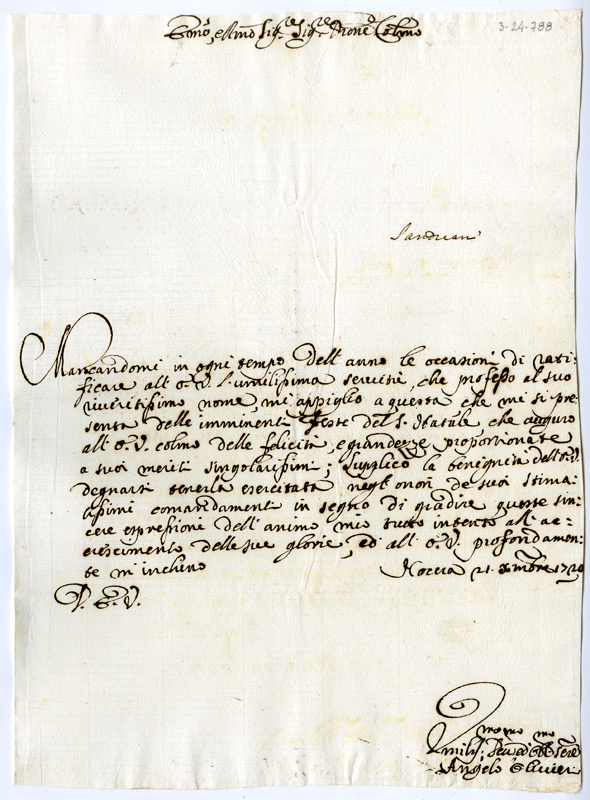 3-24-788
Emo, e Rmo Sig.re Sig.re Prone Colmo
Mancandomi in ogni tempo dell' anno le occasioni di rati-
ficare all' E. V. l'umilissima servitù, che professo al suo
riveritissimo nome, mi appiglio a questa che mi si pre-
senta delle imminenti feste del S. Natale, che auguro
all' E. V. colmo delle felicità, e grandezze proportionate
a suoi meriti singolarissimi; Supplico la benignità dell' E. V.
degnarsi tenerla esercitata negl' onori de suoi stima-
tissimi comandamenti in segno di gradire queste sin-
cere espressione dell' animo mio tutto intento all' ac-
crescimento delle sue glorie, ed all' E. V. profondamen-
te m'inchino
Nocera 21. Xmbre
D. E. V.
Angelo